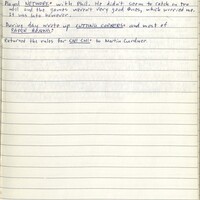 Played NETWORK* with Phil. He didn't seem to catch on too
well and the games weren't very good ones, which worried me.
It was late however.
During day wrote up CUTTING CORNERS* and most of
Returned the rules for CHI CHI* to Martin Gardner